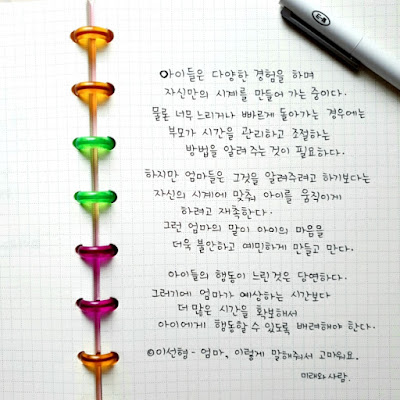 아이들은 다양한 경험을 하며
자신만의 시계를 만들어 가는 중이다.
물론 너무 느리거나 빠르게 돌아가는 경우에는
부모가 시간을 관리하고 조절하는
방법을 알려주는 것이 필요하다.
하지만 엄마들은 그것을 알려주려고 하기보다는
자신의 시계에 맞춰 아이를 움직이게
하려고 재촉한다.
그런 엄마의 말이 아이의 마음을
더욱 불안하고 예민하게 만들고 만다.
아이들의 행동이 느린 것은 당연하다.
그러기에 엄마가 예상하는 시간보다
더 많은 시간을 확보해서
아이에게 행동할 수 있도록 배려해야 한다.
©이선형 - 엄마, 이렇게 말해줘서 고마워요.
미래와사람.